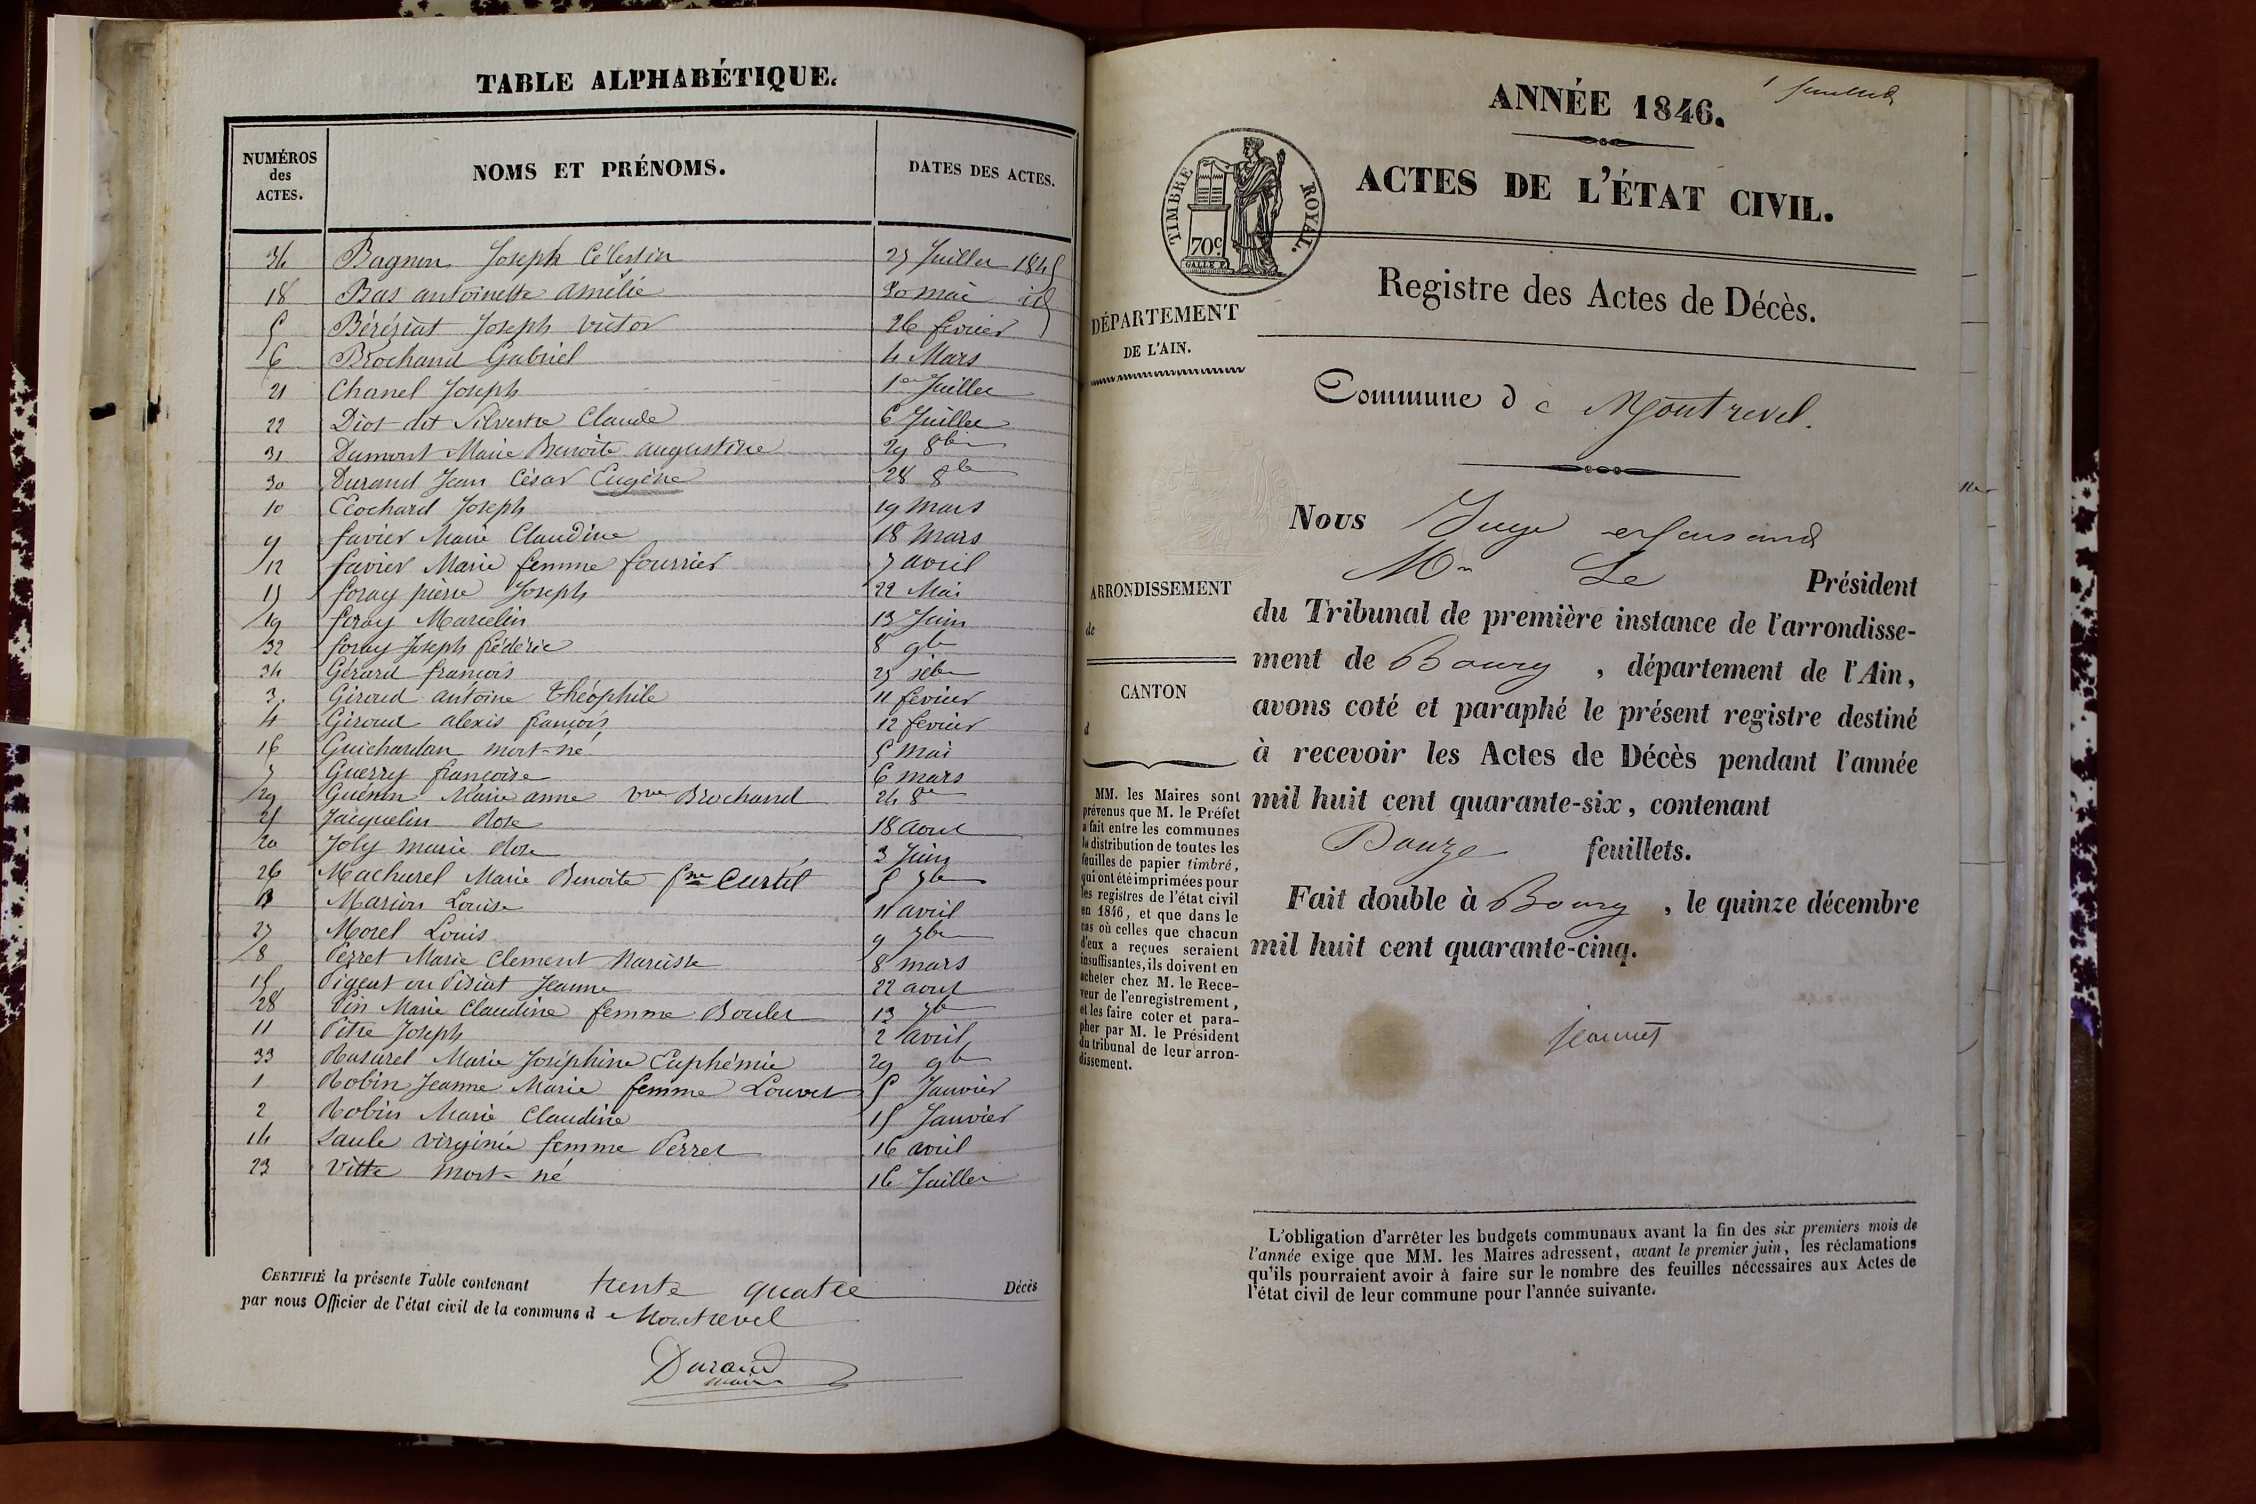 TABLE ALPHABÉTIQUE.
NUMÉROS des ACTES. NOMS ET PRÉNOMS. DATES DES ACTES.
34 Joseph Célestin 25 Juillet 1845
18 Bas antoinette amélie 20 mai id
5 Béréziat Joseph victor 26 fevrier
6 Brochand Gabriel 4 Mars
21 Chanel Joseph 1er Juillet
22 Diot dit Silvestre Claude 6 Juillet
31 Dumont Marie Benoite augustine 29 8bre
30 Durand Jean César Eugène 28 8bre
10 Ecochard Joseph 19 mars
9 favier Marie Claudine 18 mars
12 favier Marie femme fourrier 7 avril
foray pierre Joseph 22 Mai
19 foray Marcelin 13 Juin
32 foray Joseph frédéric 8 9bre
34 Gérard françois
3 Giroud antoine théophile 11 fevrier
4 Giroud alexis françois 12 fevrier
16 Guichardan mort-né 5 mai
7 Guerry françoise 6 mars
29 Guénin Marie anne vve Brochand 24 8bre
25 Jacquelin Rose 18 aout
20 Joly marie Rose Juin
26 Machurel Marie Benoite fme Curtil 5 7bre
13 Marion Louise 11 avril
27 Morel Louis 9 7bre
8 Perret Marie Clement Narcisse 8 mars
Pigeat ou Piriat Jeanne 22 aout
28 Pin Marie Claudine femme Boulet 13 7bre
11 Pitre Joseph 2 avril
33 Rasurel Marie Joséphine Euphémie 29 9bre
1 Robin Jeanne Marie femme Louvet 5 Janvier
2 Robin Marie Claudine 15 Janvier
14 Saule virginie femme Perret 16 avril
23 Vitte mort-né 16 Juillet
CERTIFIÉ la présente Table contenant trente quatre Décès
par nous Officier de l'état civil de la commune d e Montrevel
Durand
maire
1er feuillet
ANNÉE 1846.
ACTES DE L'ÉTAT CIVIL.
TIMBRE ROYAL.
70c
Registre des Actes de Décès.
DÉPARTEMENT
DE L'AIN.
Commune d e Montrevel.
Nous Juge
Mr Le Président
ARRONDISSEMENT
de
du Tribunal de première instance de l'arrondisse-
ment de Bourg, département de l'Ain,
CANTON
d
avons coté et paraphé le présent registre destiné
à recevoir les Actes de Décès pendant l'année
mil huit cent quarante-six, contenant
Douze feuillets.
Fait double à Bourg, le quinze décembre
mil huit cent quarante-cinq.
MM. les Maires sont
prévenus que M. le Préfet
a fait entre les communes
la distribution de toutes les
feuilles de papier timbré,
qui ont été imprimées pour
les registres de l'état civil
en 1846, et que dans le
cas où celles que chacun
d'eux a reçues seraient
insuffisantes, ils doivent en
acheter chez M. le Rece-
veur de l'enregistrement,
et les faire coter et para-
pher par M. le Président
du tribunal de leur arron-
dissement.
L'obligation d'arrêter les budgets communaux avant la fin des six premiers mois de
l'année exige que MM. les Maires adressent, avant le premier juin, les réclamations
qu'ils pourraient avoir à faire sur le nombre des feuilles nécessaires aux Actes de
l'état civil de leur commune pour l'année suivante.